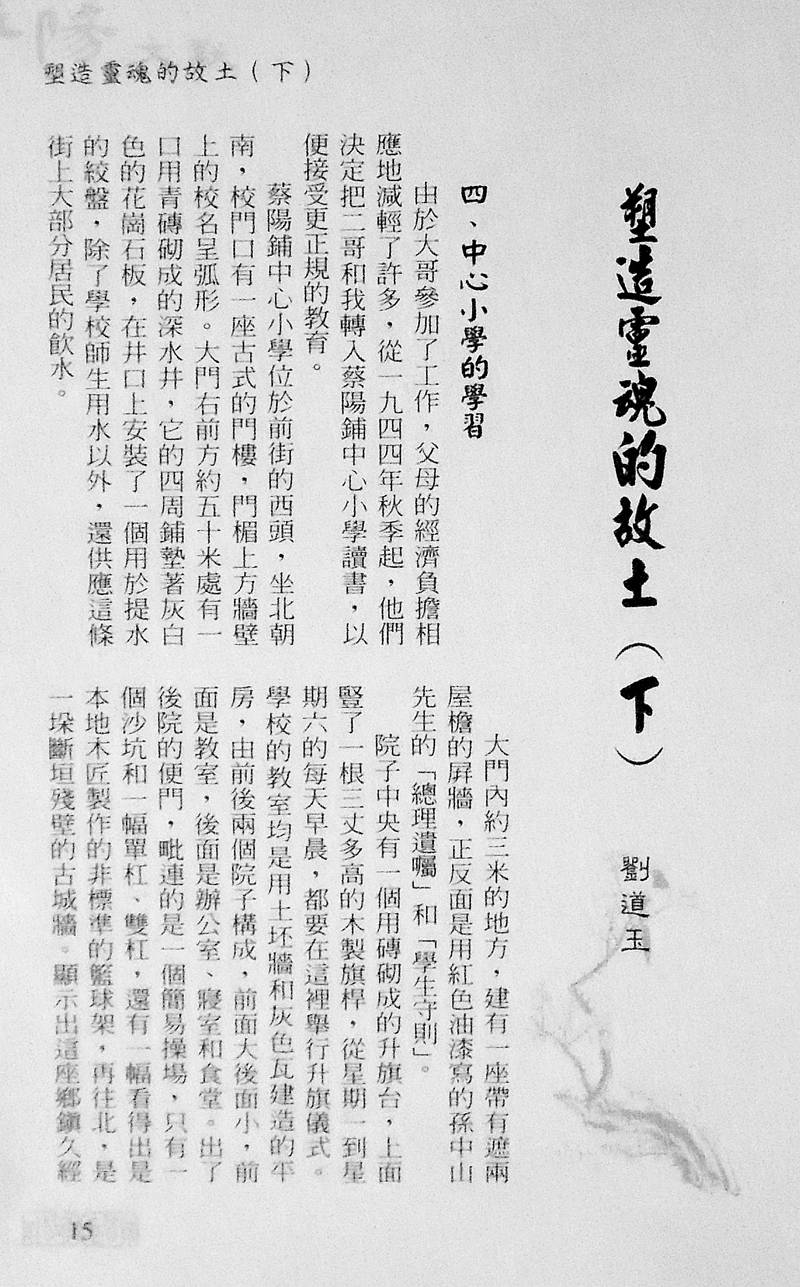 塑造靈魂的故土（下）
塑造靈魂的故土（下）
劉道玉
四、中心小學的學習
由於大哥參加了工作，父母的經濟負擔相
應地減輕了許多，從一九四四年秋季起，他們
決定把二哥和我轉入蔡陽鋪中心小學讀書，以
便接受更正規的教育。
蔡陽鋪中心小學位於前街的西頭，坐北朝
南，校門口有一座古式的門樓，門楣上方牆壁
上的校名呈弧形。大門右前方約五十米處有一
口用青磚砌成的深水井，它的四周鋪墊著灰白
色的花崗石板，在井口上安裝了一個用於提水
的絞盤，除了學校師生用水以外，還供應這條
街上大部分居民的飲水。
大門內約三米的地方，建有一座帶有遮兩
屋檐的屏牆，正反面是用紅色油漆寫的孫中山
先生的「總理遺囑」和「學生守則」。
院子中央有一個用磚砌成的升旗台，上面
豎了一根三丈多高的木製旗桿，從星期一到星
期六的每天早晨，都要在這裡舉行升旗儀式。
學校的教室均是用土坯牆和灰色瓦建造的平
房，由前後兩個院子構成，前面大後面小，前
面是教室，後面是辦公室、寢室和食堂。出了
後院的便門，毗連的是一個簡易操場，只有一
個沙坑和一幅單杠、雙杠，還有一幅看得出是
本地木匠製作的非標準的籃球架，再往北，是
一垛斷垣殘壁的古城牆。顯示出這座鄉鎮久經
15